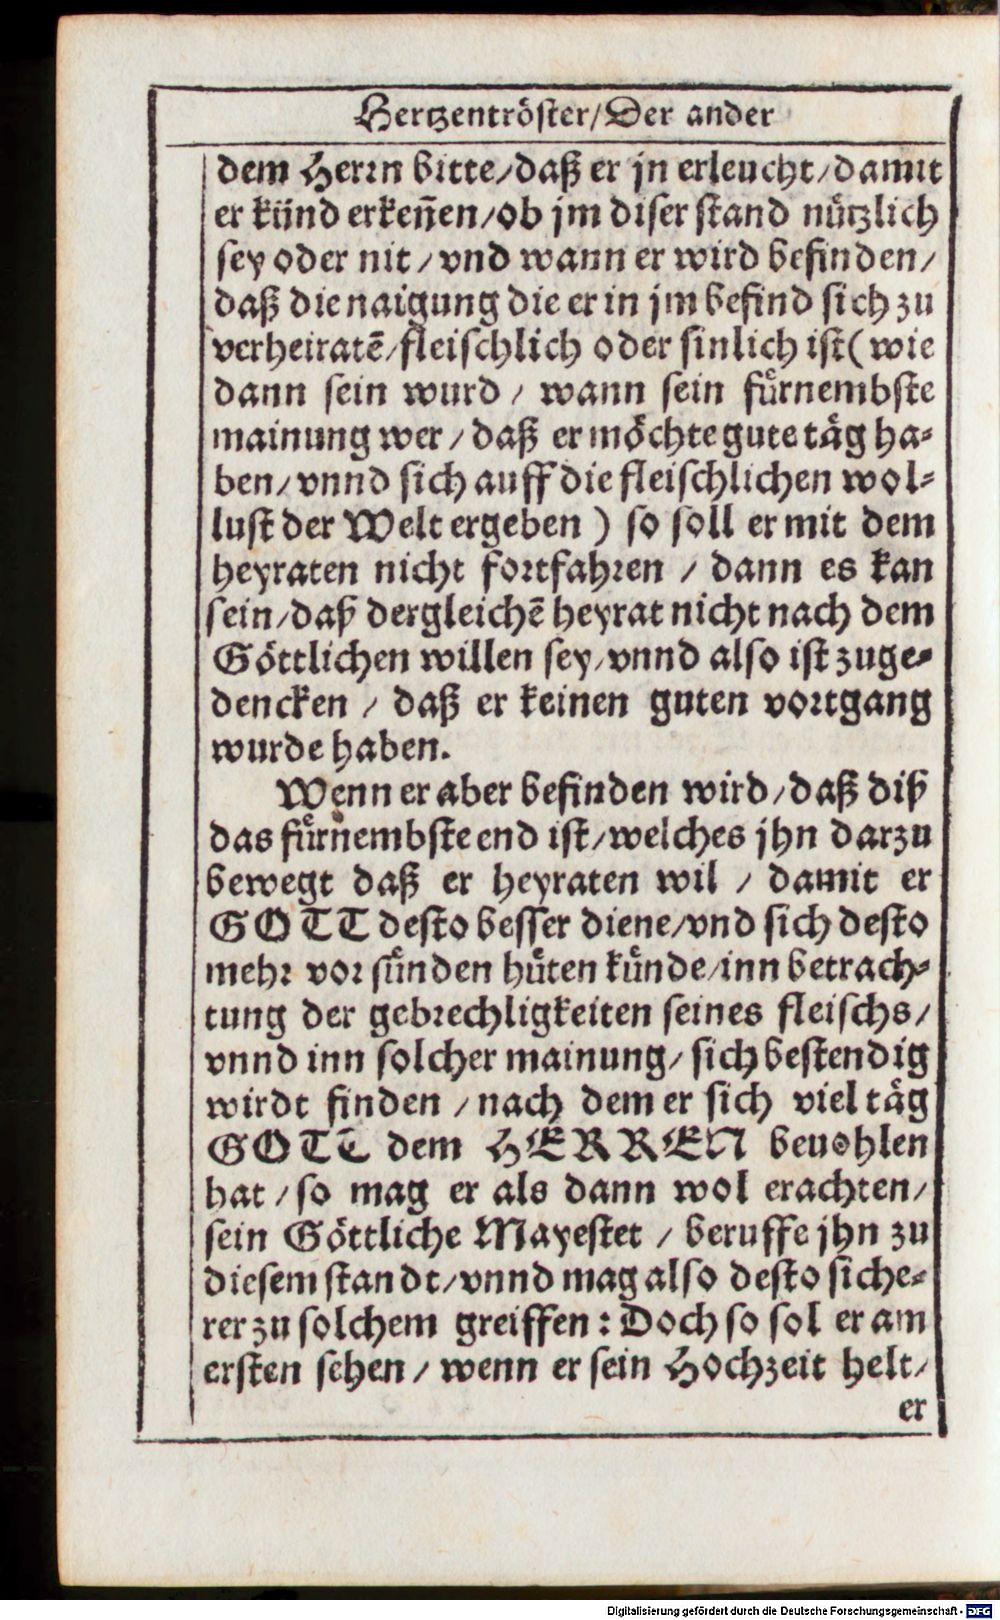 Hertzentröster/Der ander
dem Herꝛn bitte/daß er jn erleucht/damit
er künd erkeñen/ob jm diser stand nützlich
sey oder nit/vnd wann er wird befinden/
daß die naigung die er in jm befind sich zu
verheiratē/fleischlich oder sinlich ist(wie
dann sein wurd/ wann sein fürnembste
mainung wer/daß er möchte gute täg ha-
ben/vnnd sich auff die fleischlichen wol-
lust der Welt ergeben) so soll er mit dem
heyraten nicht foꝛtfahꝛen/dann es kan
sein/daß dergleichē heyrat nicht nach dem
Göttlichen willen sey/vnnd also ist zuge-
dencken/daß er keinen guten voꝛtgang
wurde haben.
Wenn er aber befinden wird/daß diß
das fürnembste end ist/welches jhn darzu
bewegt daß er heyraten wil/damit er
GOTT desto besser diene/vnd sich desto
mehꝛ voꝛ sünden hüten künde/inn betrach-
tung der gebꝛechligkeiten seines fleischs/
vnnd inn solcher mainung/sich bestendig
wirdt finden/nach dem er sich viel täg
GOTT dem HERREN beuohlen
hat/so mag er als dann wol erachten/
sein Göttliche Mayestet/beruffe jhn zu
diesem standt/vnnd mag also desto siche-
rer zu solchem greiffen: Doch so sol er am
ersten sehen/wenn er sein Hochzeit helt/
er
Digitalisierung gefördert durch die Deutsche Forschungsgemeinschaft - DFG